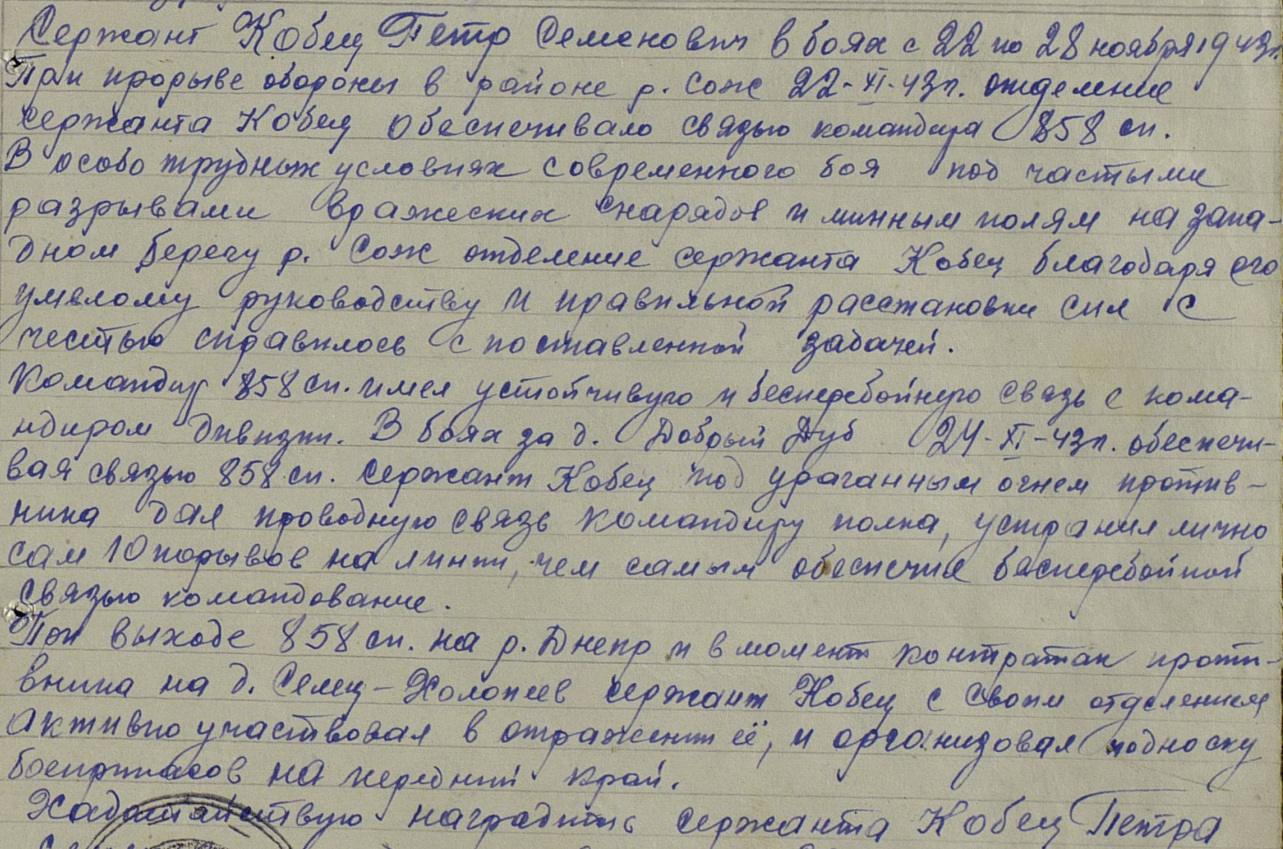 Сержант Кобец Петр Семенович в боях с 22 по 28 ноября 1943г.
При прорыве обороны в районе р. Сож 22-XI-43г. отделение
сержанта Кобец обеспечивало связью командира 858 сп.
В особо трудных условиях современного боя под частыми
разрывами вражеских снарядов и минным полям на запа-
дном берегу р. Сож отделение сержанта Кобец благодаря его
умелому руководству и правильной расстановки сил с
честью справилось с поставленной задачей.
Командир 858 сп. имел устойчивую и бесперебойную связь с кома-
ндиром дивизии. В боях за д. Добрый Дуб 24-XI-43г. обеспечи-
вая связью 858 сп. сержант Кобец под ураганным огнем против-
ника дал проводную связь командиру полка, устранил лично
сам 10 порывов на линии, чем самым обеспечил бесперебойной
связью командование.
При выходе 858 сп. на р. Днепр и в момент контратак проти-
вника на д. Селец-Холопеев сержант Кобец с своим отделением
активно участвовал в отражении её, и организовал подноску
боеприпасов на передний край.
Ходатайствую наградить сержанта Кобец Петра